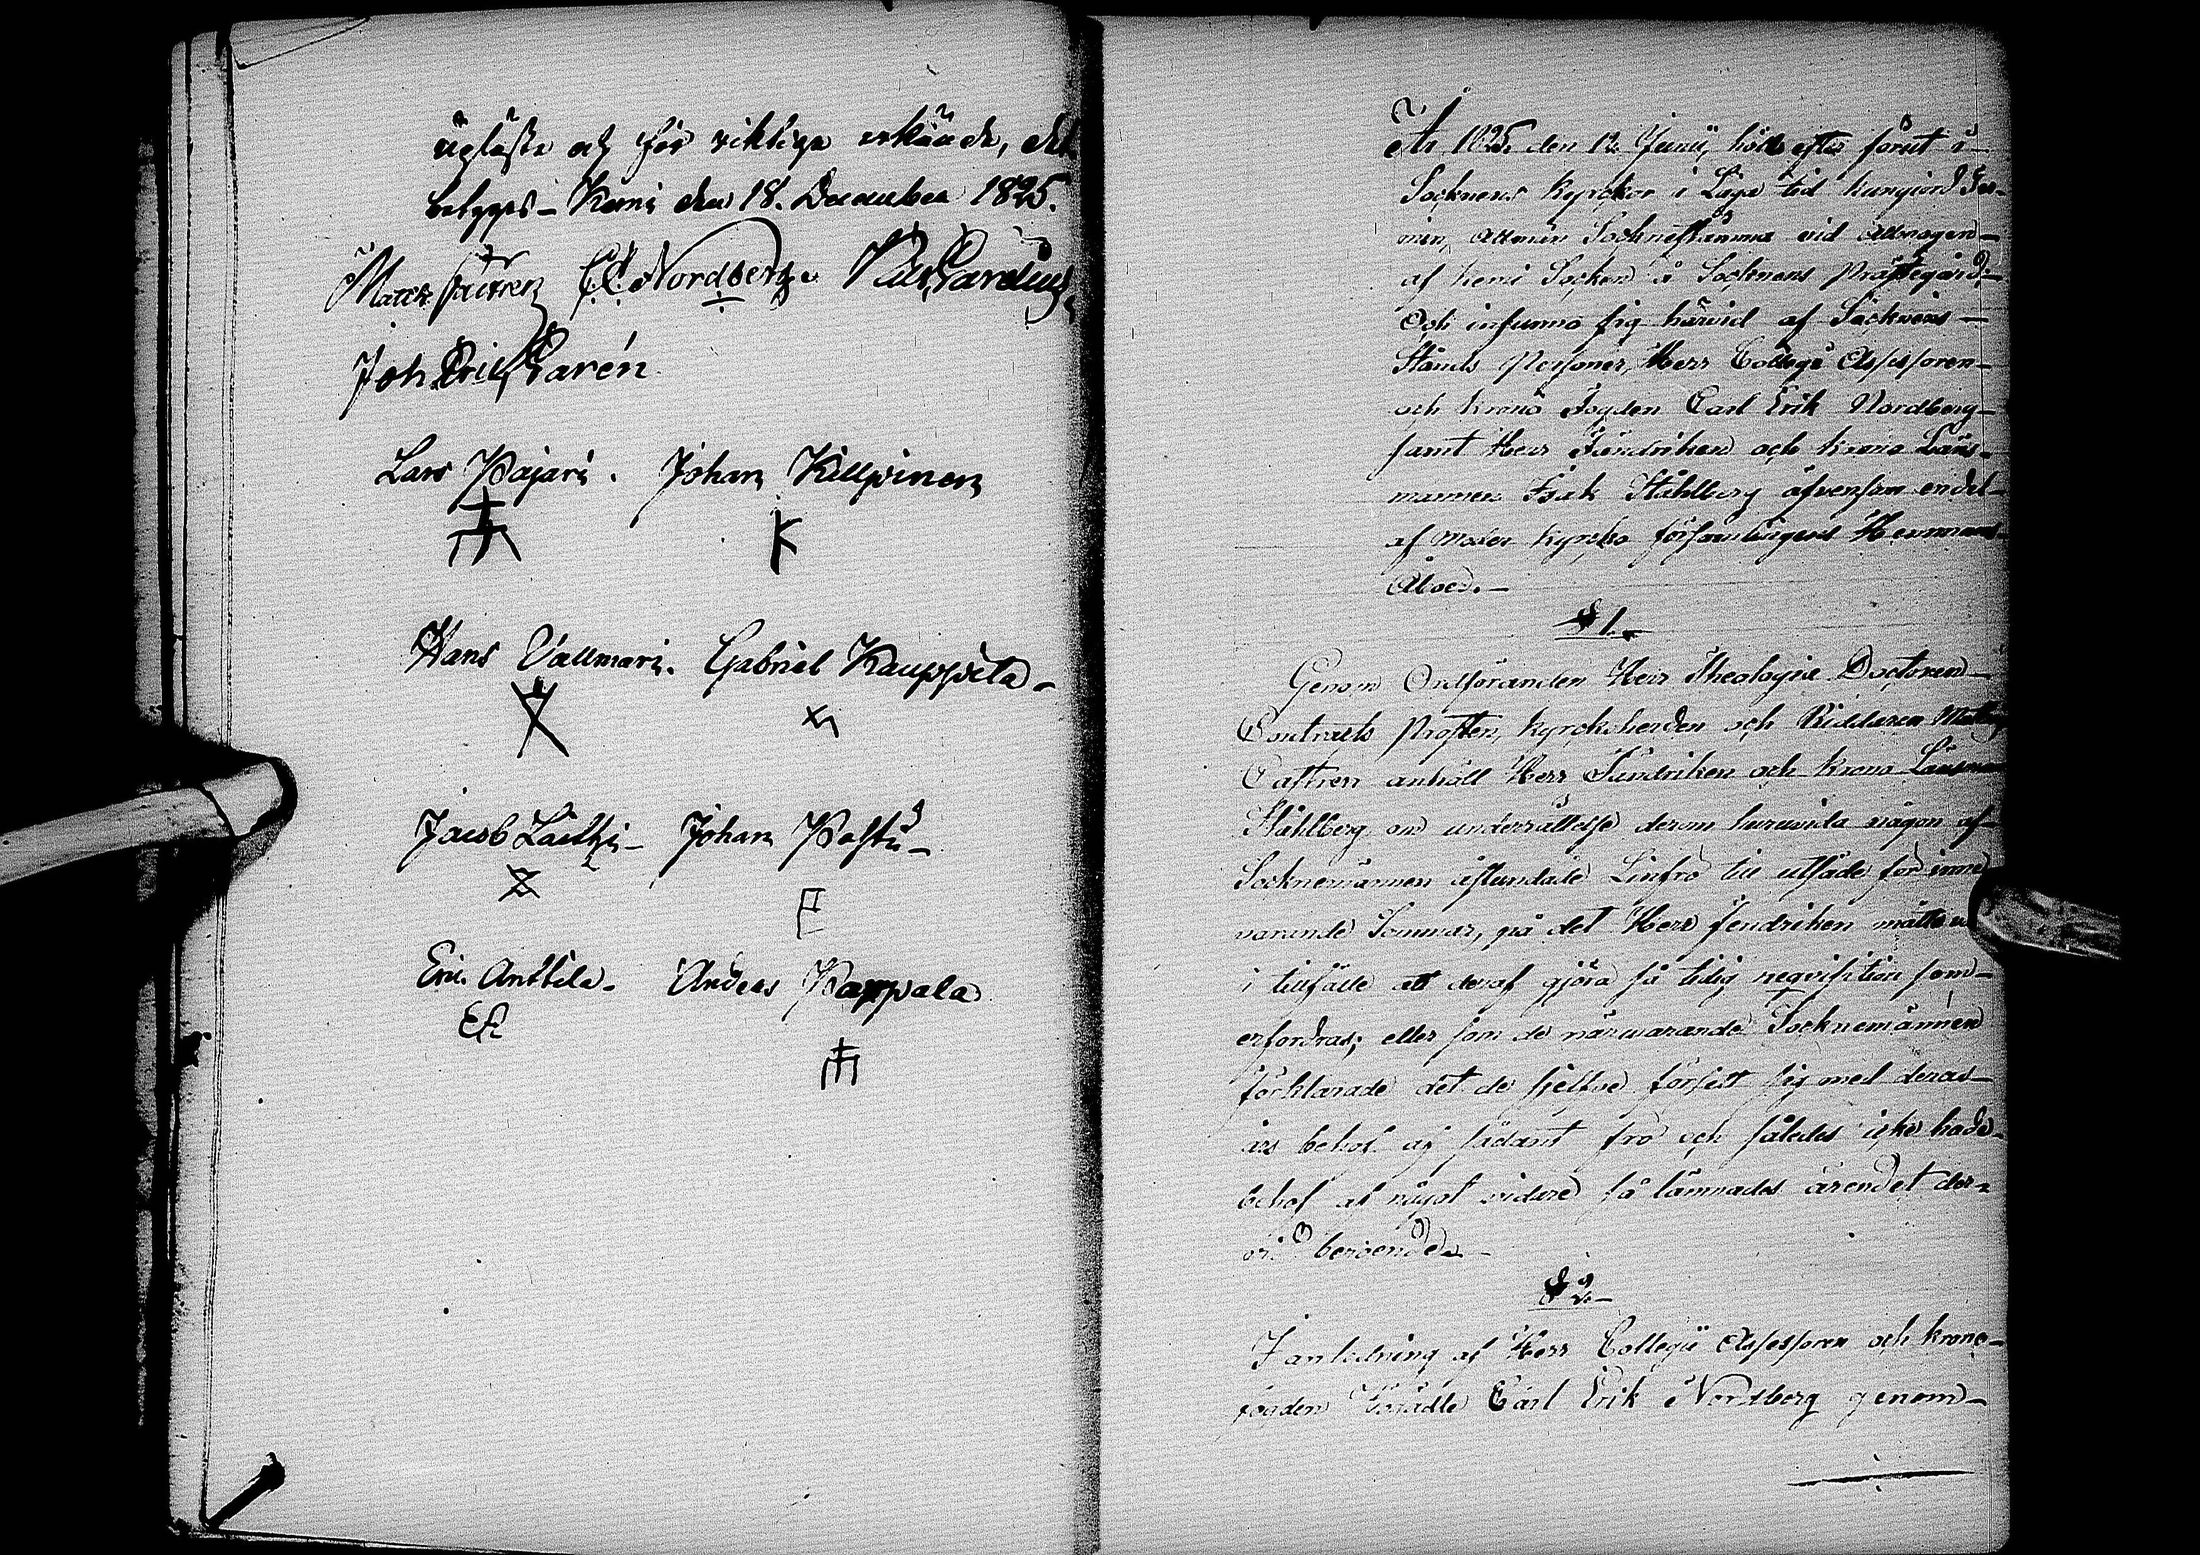 upläste och för riktiga erkände, det
betyges – Kemi den 18. December 1825.
Matth. Castrén C. E. Nordberg
Joh. Eric
Lars Pajari. Johan Killpinen
K
Hans Vallmari. Gabriel Kauppila –
Jacob – Johan
Eric Anttila. Anders Kappala
EA
År 1825. den 12. Junii, hölts efter förut i
Socknens Kyrckor i Laga tid kungiord Ter-
min, Allmän Sockne Stämma vid Allmogen
af Kemi Socken å Socknens Prästegård.
Och infunno sig härvid af Socknens –
Stånds Personer, Herr Collegii Assessoren –
och Krono Fogden Carl Erik Nordberg –
samt Herr Fändriken och Krono Läns-
mannen Isak Ståhlberg äfvensom en del
af Moder Kyrcko församlingens Hemmans
Åboer. –
§ 1.
Genom Ordföranden Herr Theologiæ Doctoren –
Contracts Prosten, Kyrckoherden och Riddaren
Castren anhöll Herr Fändriken och Krono
Ståhlberg om underrättelse derom huruvida någon af –
Socknemännen åstundade Linfrö till utsäde för inne
varande Sommar, på det Herr Fendriken måtte
i tillfälle att deraf gjöra så tidig reqvisition som –
erfordras; eller som de närwarande Socknemännen
förklarade det de sielfve försedt sig med deras –
års behof af sådant frö och således icke hade
behof af något vidare så lämnades ärendet der-
vid beroende. –
§ 2.
I anledning af Herr Collegii Assessoren och Krono-
fogden Carl Erik Nordberg genom –